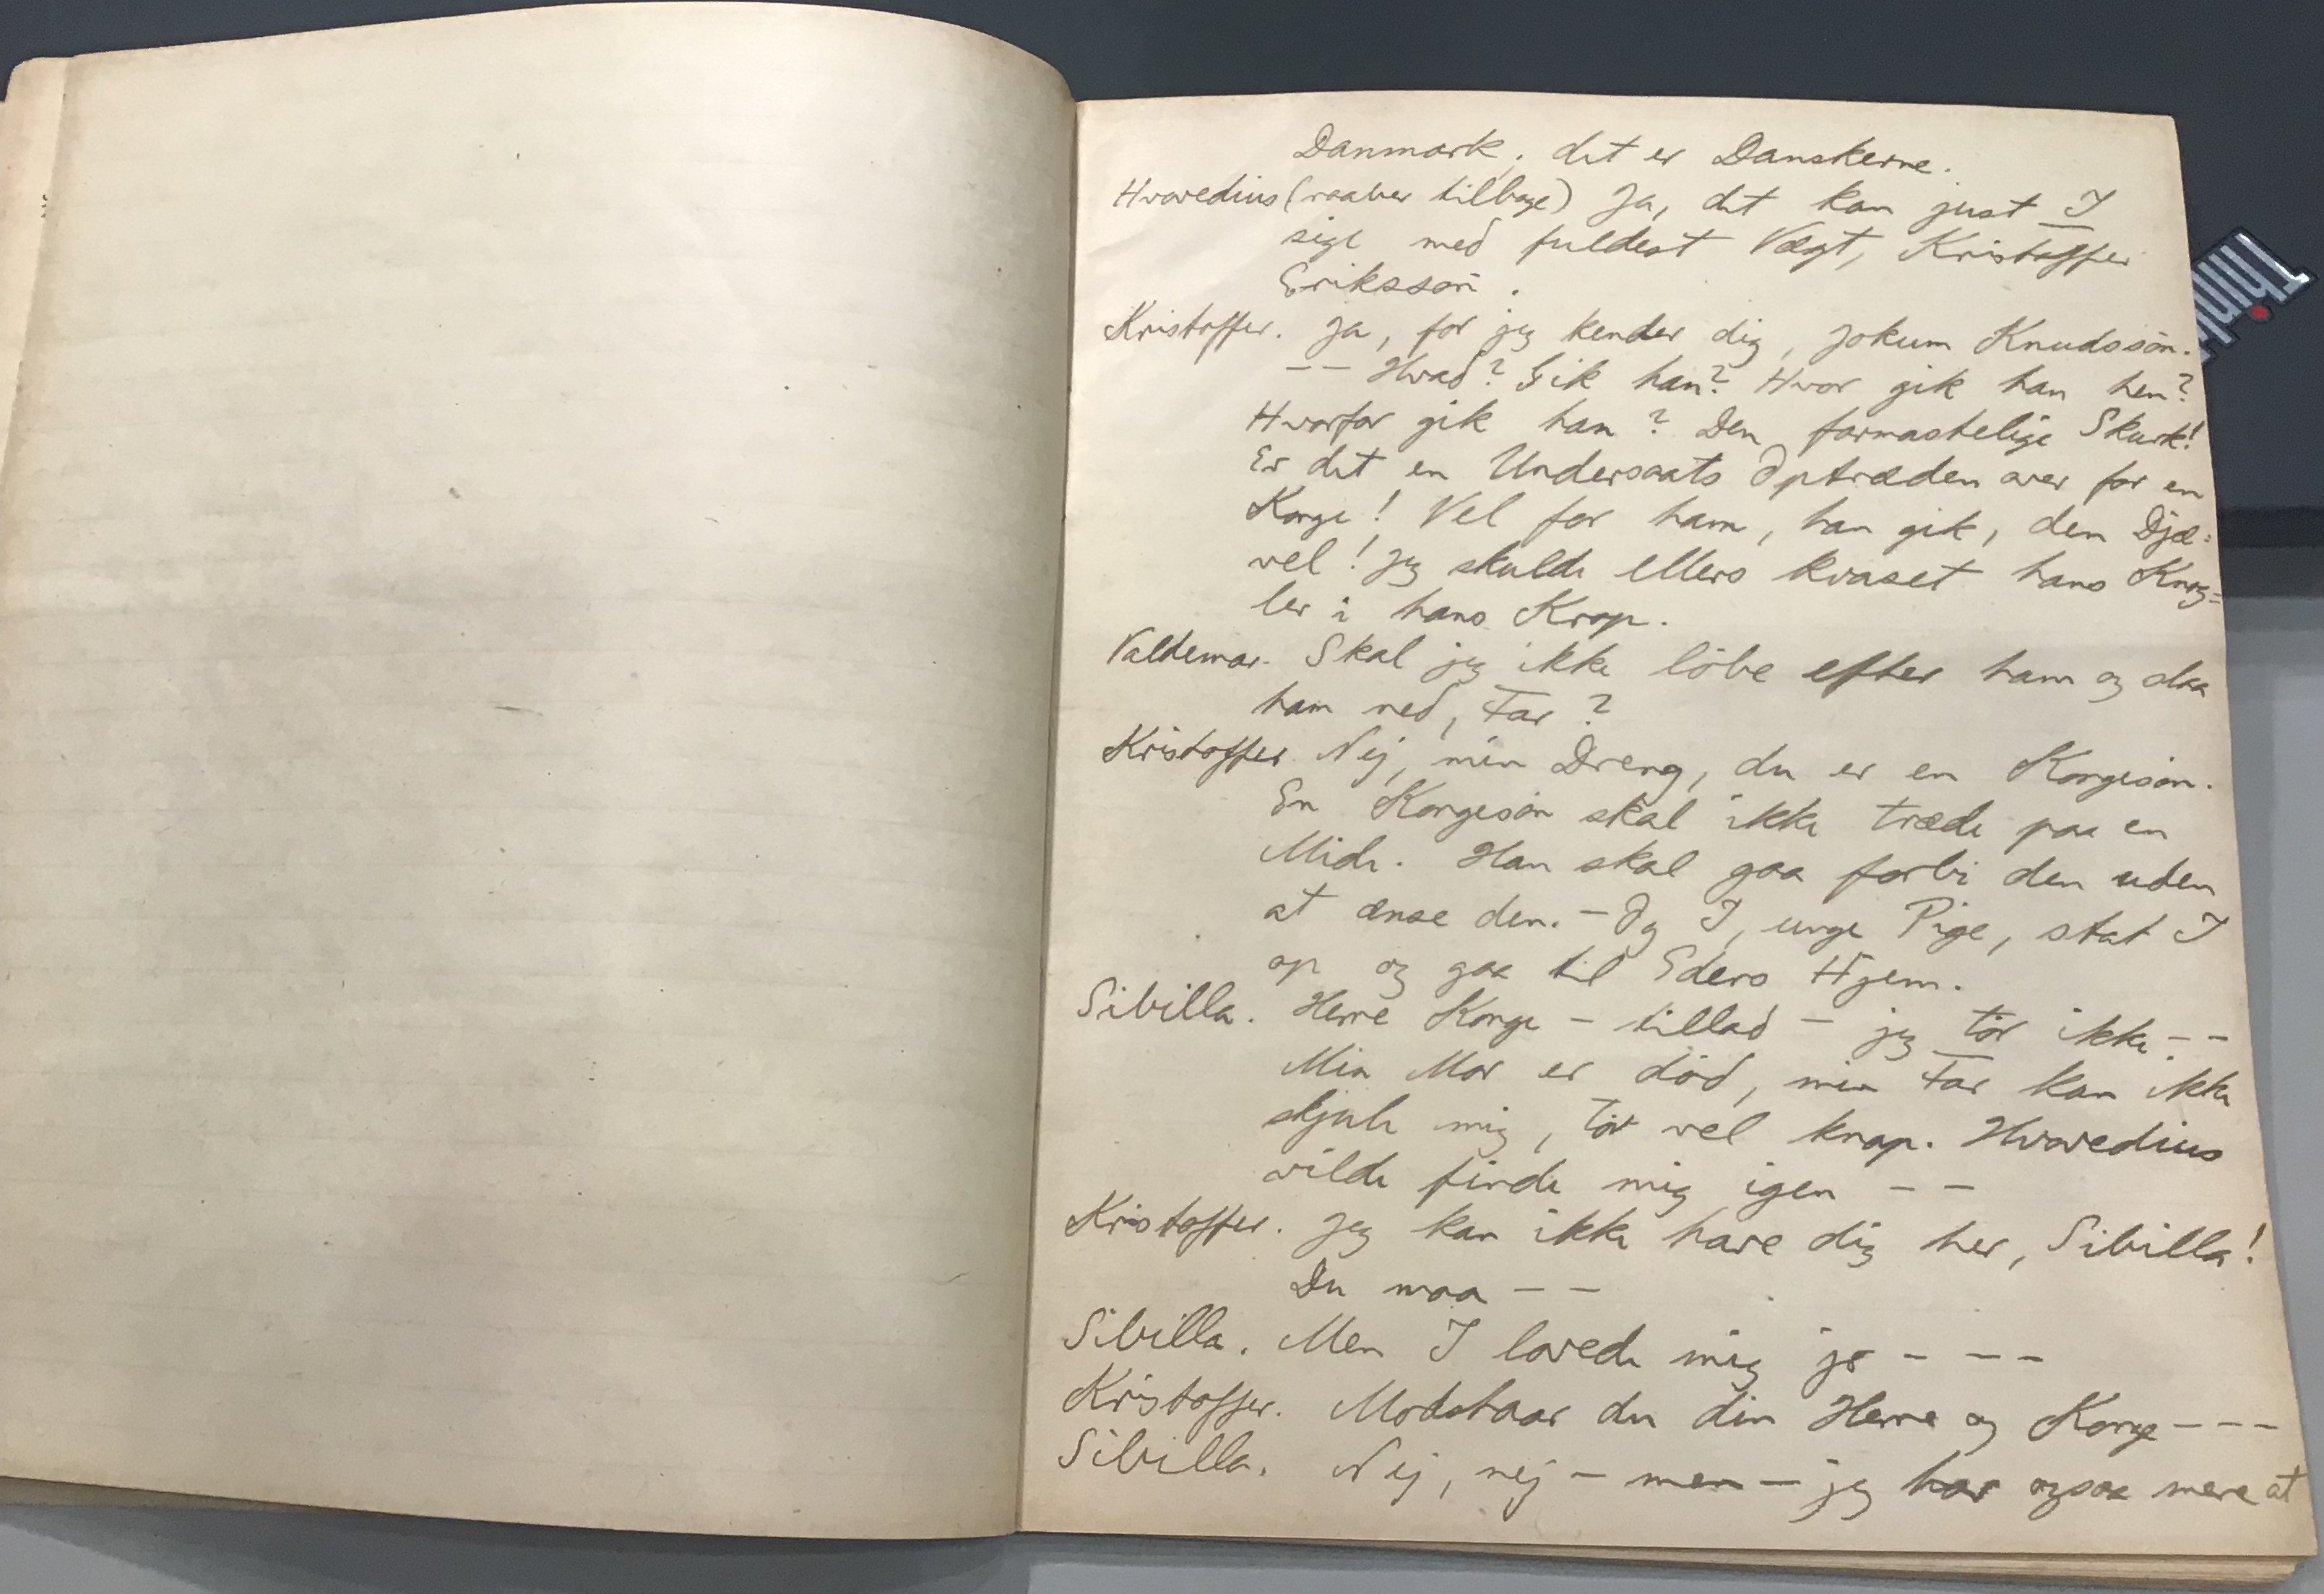 Danmark, det er Danskerne.
Hvavedius (raaber tilbage) Ja, det kan just I
sige med fuldest Vægt, Kristoffer
Erikssön.
Kristoffer. Ja, for jeg kender dig, Jokum Knudssön.
-- Hvad? Gik han? Hvor gik han hen?
Hvorfor gik han? Den formastelige Skurk!
Er det en Undersaats Optræden over for en
Konge! Vel for ham, han gik, den Djæ=
vel! Jeg skulde ellers kvaset hans Knog=
ler i hans Krop.
Valdemar. Skal jeg ikke löbe efter ham og slaa
ham ned, Far?
Kristoffer. Nej, min Dreng, du er en Kongesön.
En Kongesön skal ikke træde paa en
Mide. Han skal gaa forbi den uden
at ænse den. - Og I, unge Pige, stat I
op og gaa til Eders Hjem.
Sibilla. Herre Konge - tillad - jeg tör ikke --
Min Mor er död, min Far kan ikke
skjule mig, tör vel knap. Hvavedius
vilde finde mig igen --
Kristoffer. Jeg kan ikke have dig her, Sibilla!
Du maa --
Sibilla. Men I lovede mig jo ---
Kristoffer. Modstaar du din Herre og Konge ---
Sibilla. Nej, nej - men - jeg har ogsaa mere at